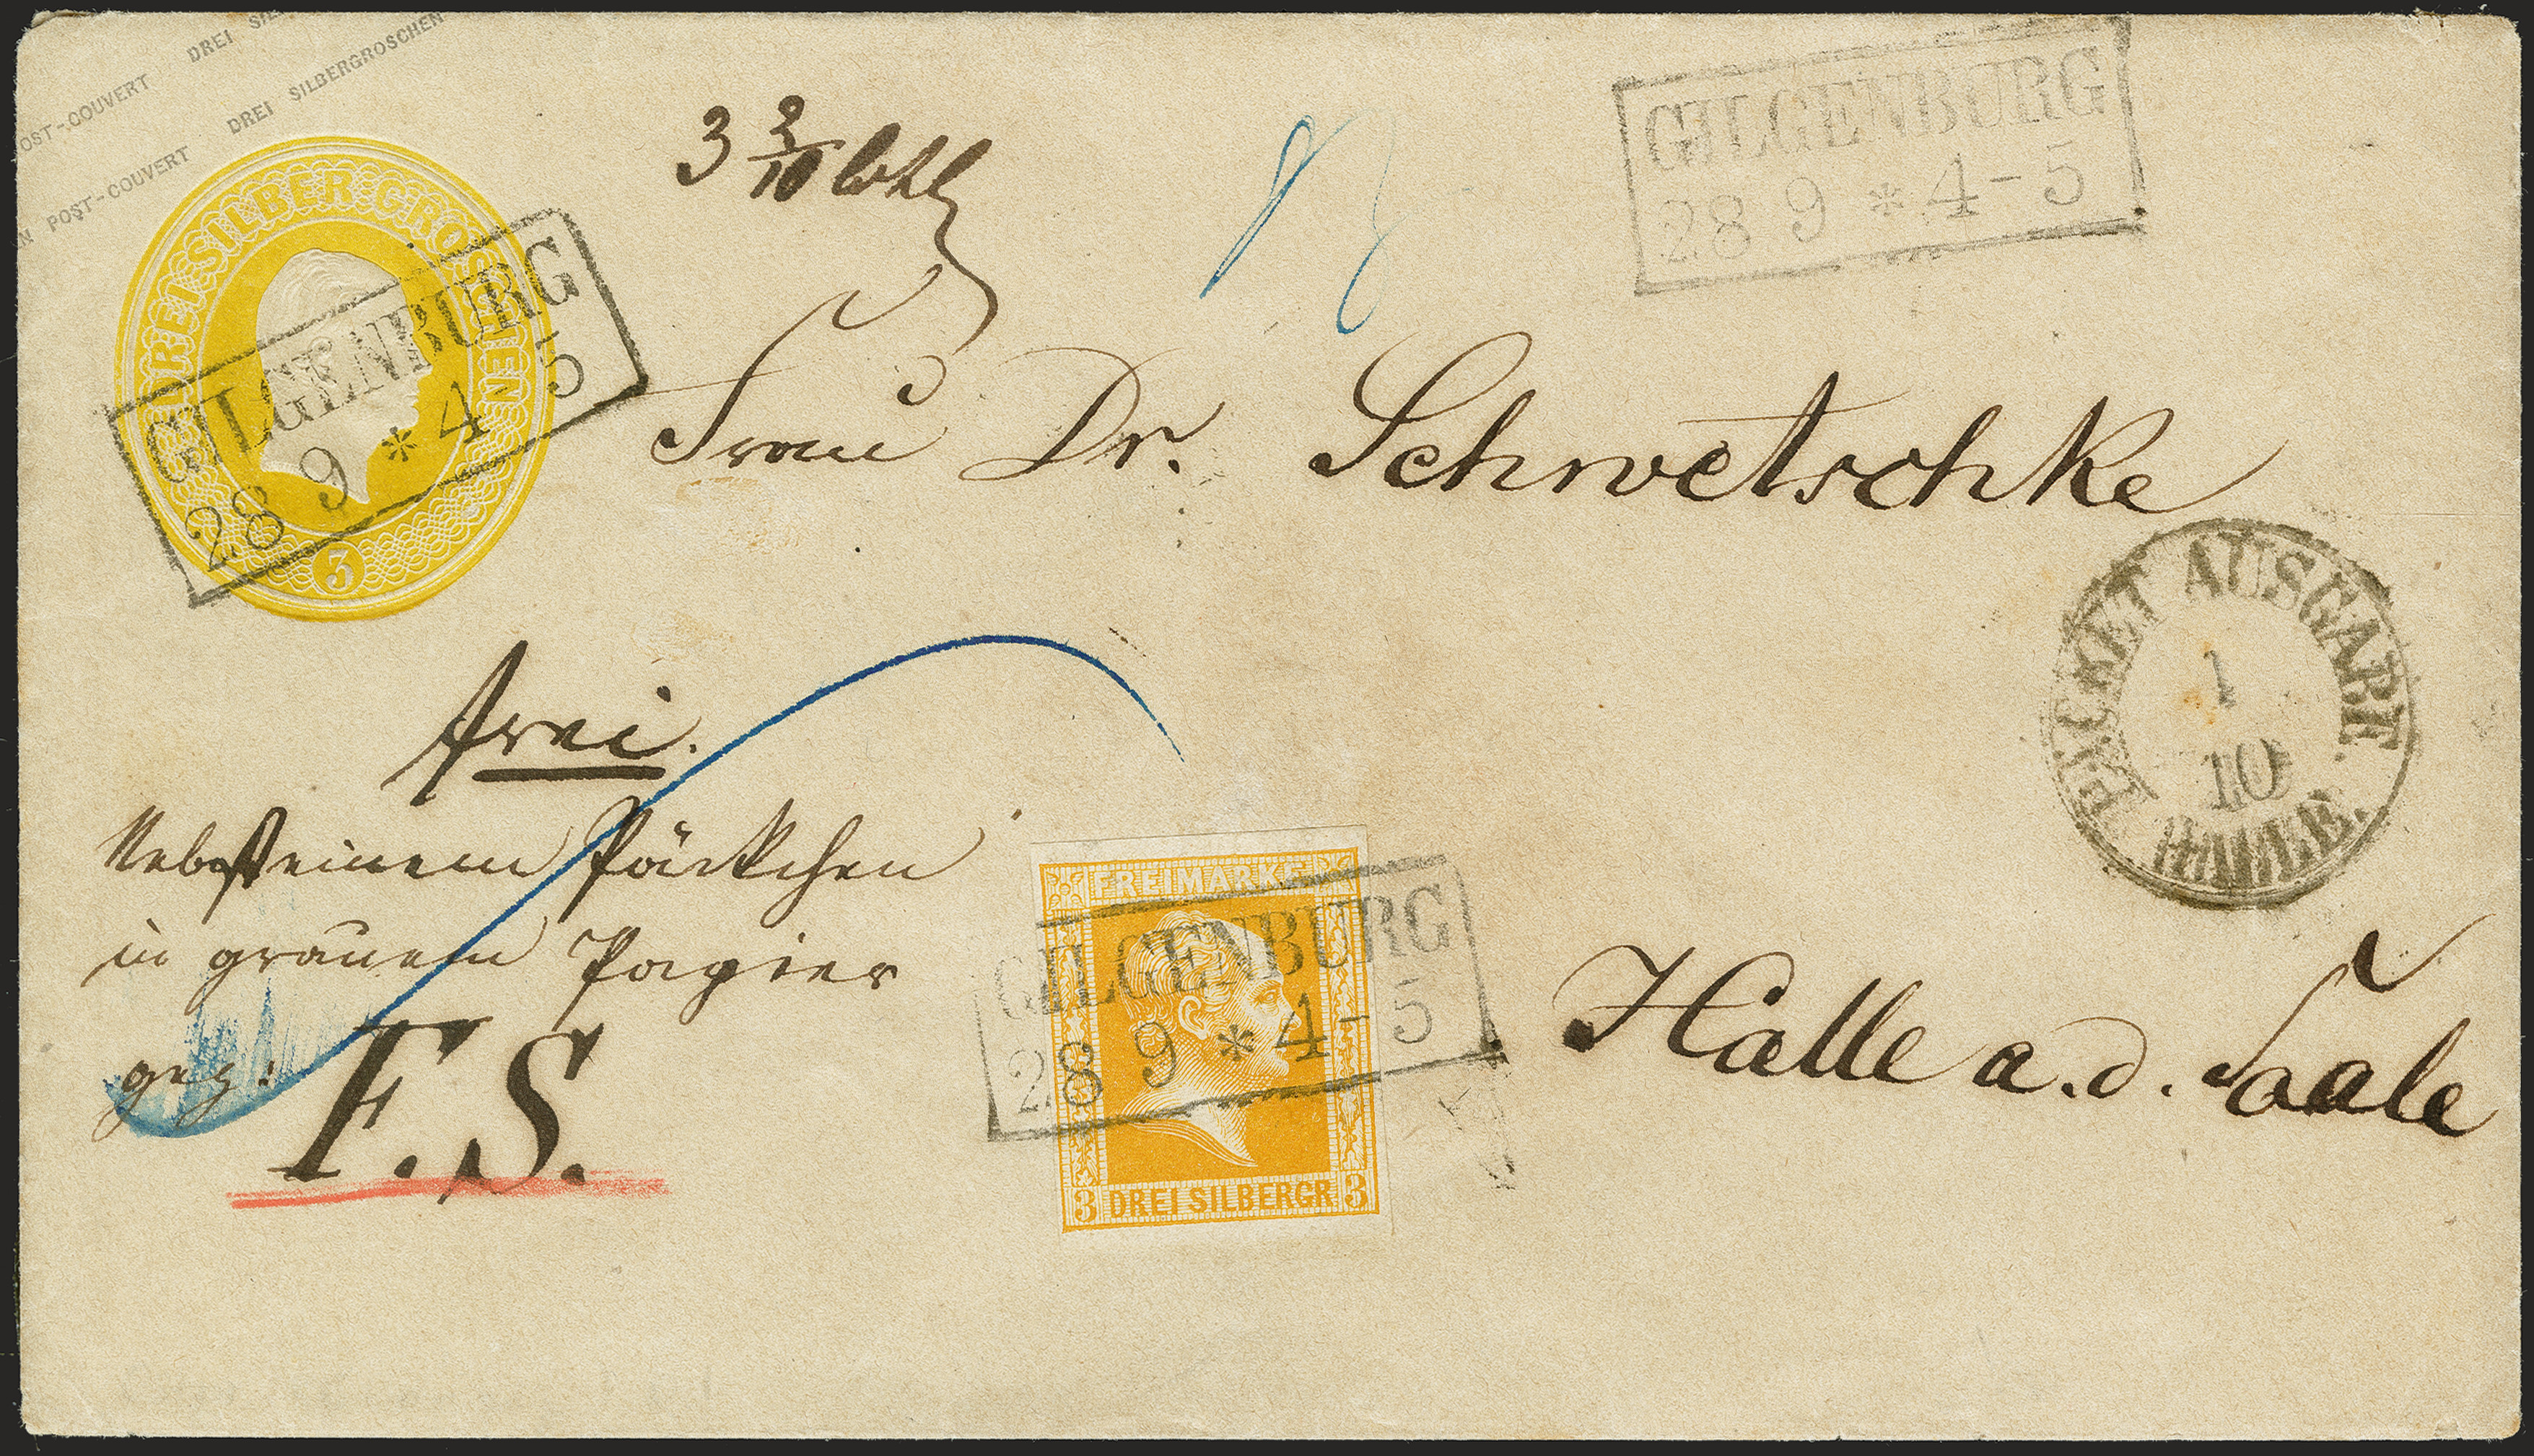 DREI
POST-COUVERT DREI SILBERGROSCHEN
POST-COUVERT
DREI SILBER GROSCHEN
3
GILGENBURG
28 9 * 4-5
3 2/10 Loth
GILGENBURG
28 9 * 4-5
Frau Dr. Schwetschke
PACKET AUSGABE.
1
10
HALLE.
frei.
Nebst einem Päckchen
in grauem Papier
gez:
F. S.
FREIMARKE
GILGENBURG
28 9 * 4-5
3 DREI SILBERGR 3
Halle a. d. Saale